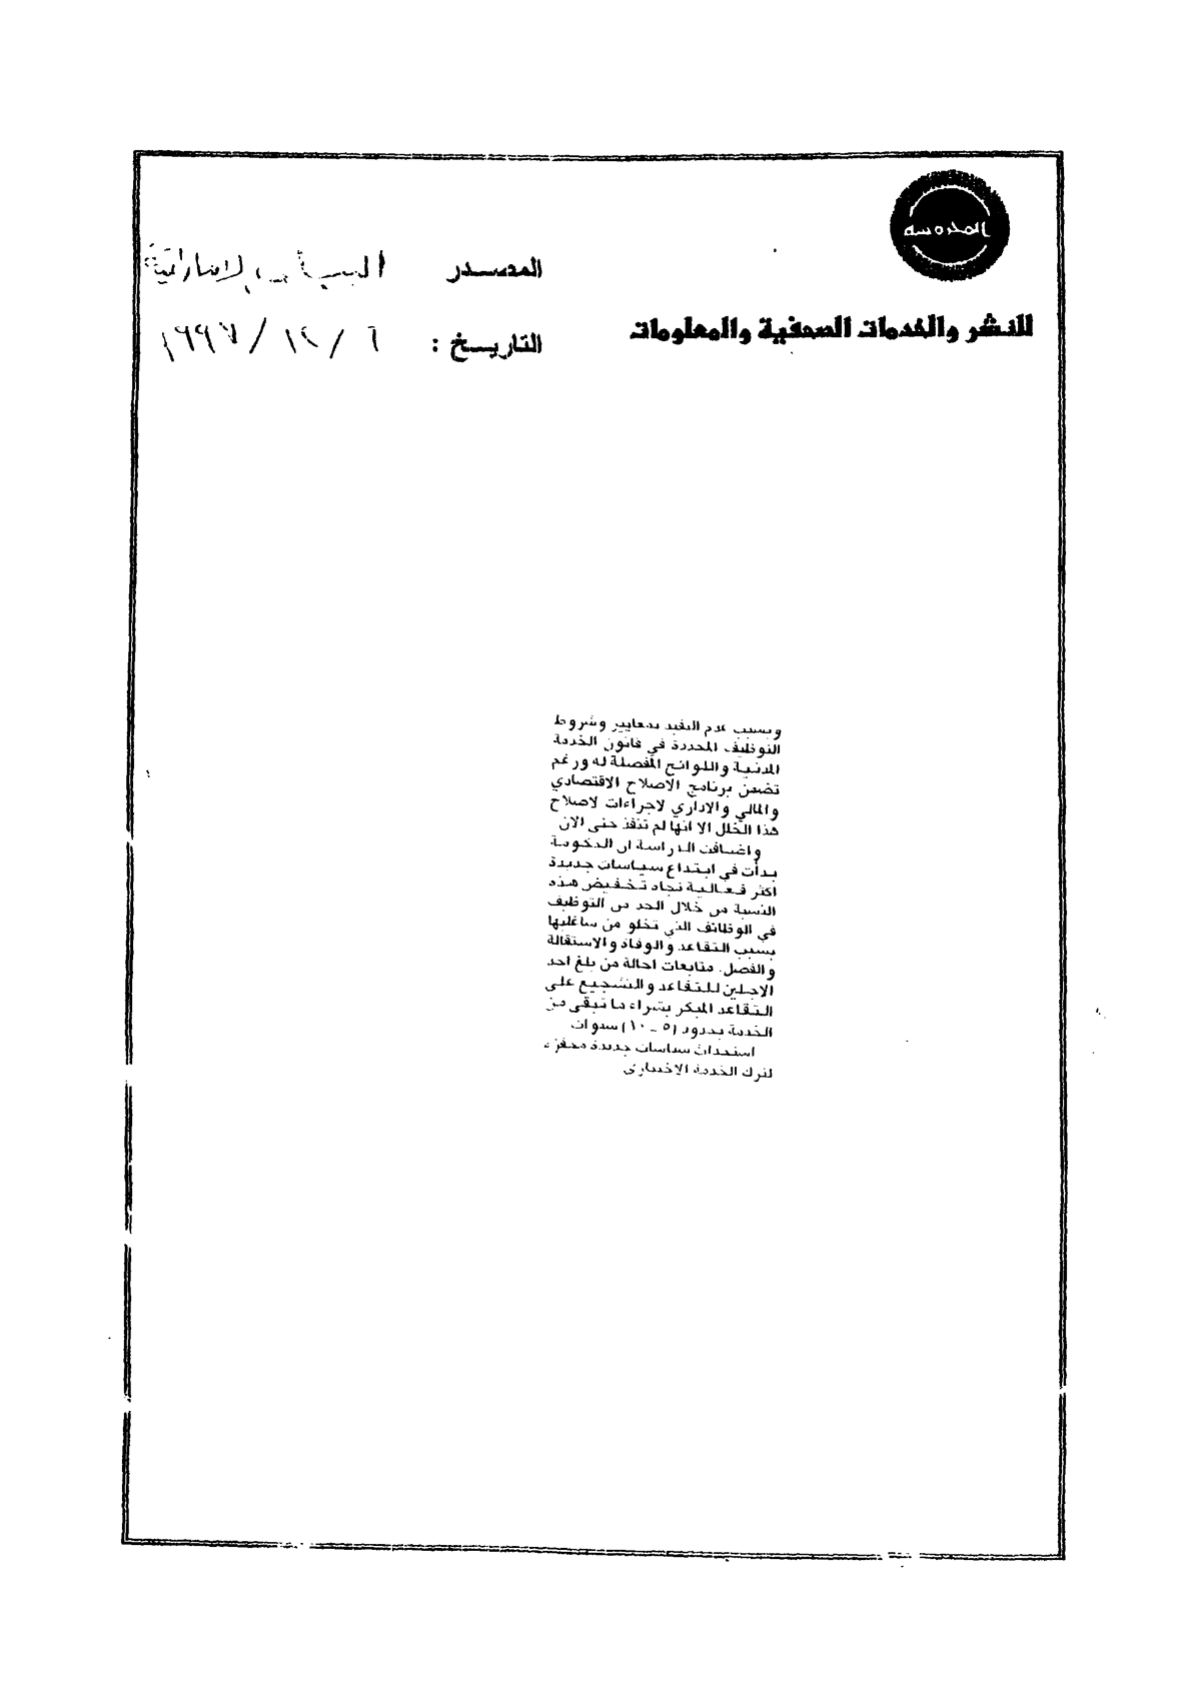 المحروسة
للنشر والخدمات الصحفية والمعلومات
المصدر البيان الإماراتية
التاريخ : ٦ / ١٢ / ١٩٩٧
وبسبب عدم التقيد بمعايير وشروط
التوظيف المحددة في قانون الخدمة
المدنية واللوائح المفصلة له ورغم
تضمن برنامج الاصلاح الاقتصادي
والمالي والاداري لاجراءات لاصلاح
هذا الخلل الا انها لم تنفذ حتى الان
واضافت الدراسة ان الحكومة
بدأت في ابتداع سياسات جديدة
اكثر فعالية تجاه تخفيض هذه
النسبة من خلال الحد من التوظيف
في الوظائف التي تخلو من شاغليها
بسبب التقاعد والوفاة والاستقالة
والفصل. متابعات احالة من بلغ احد
الاجلين للتقاعد والتشجيع على
التقاعد المبكر بشراء ما تبقى من
الخدمة بحدود (٥ - ١٠) سنوات
استحداث سياسات جديدة محفزة
لترك الخدمة الاختياري